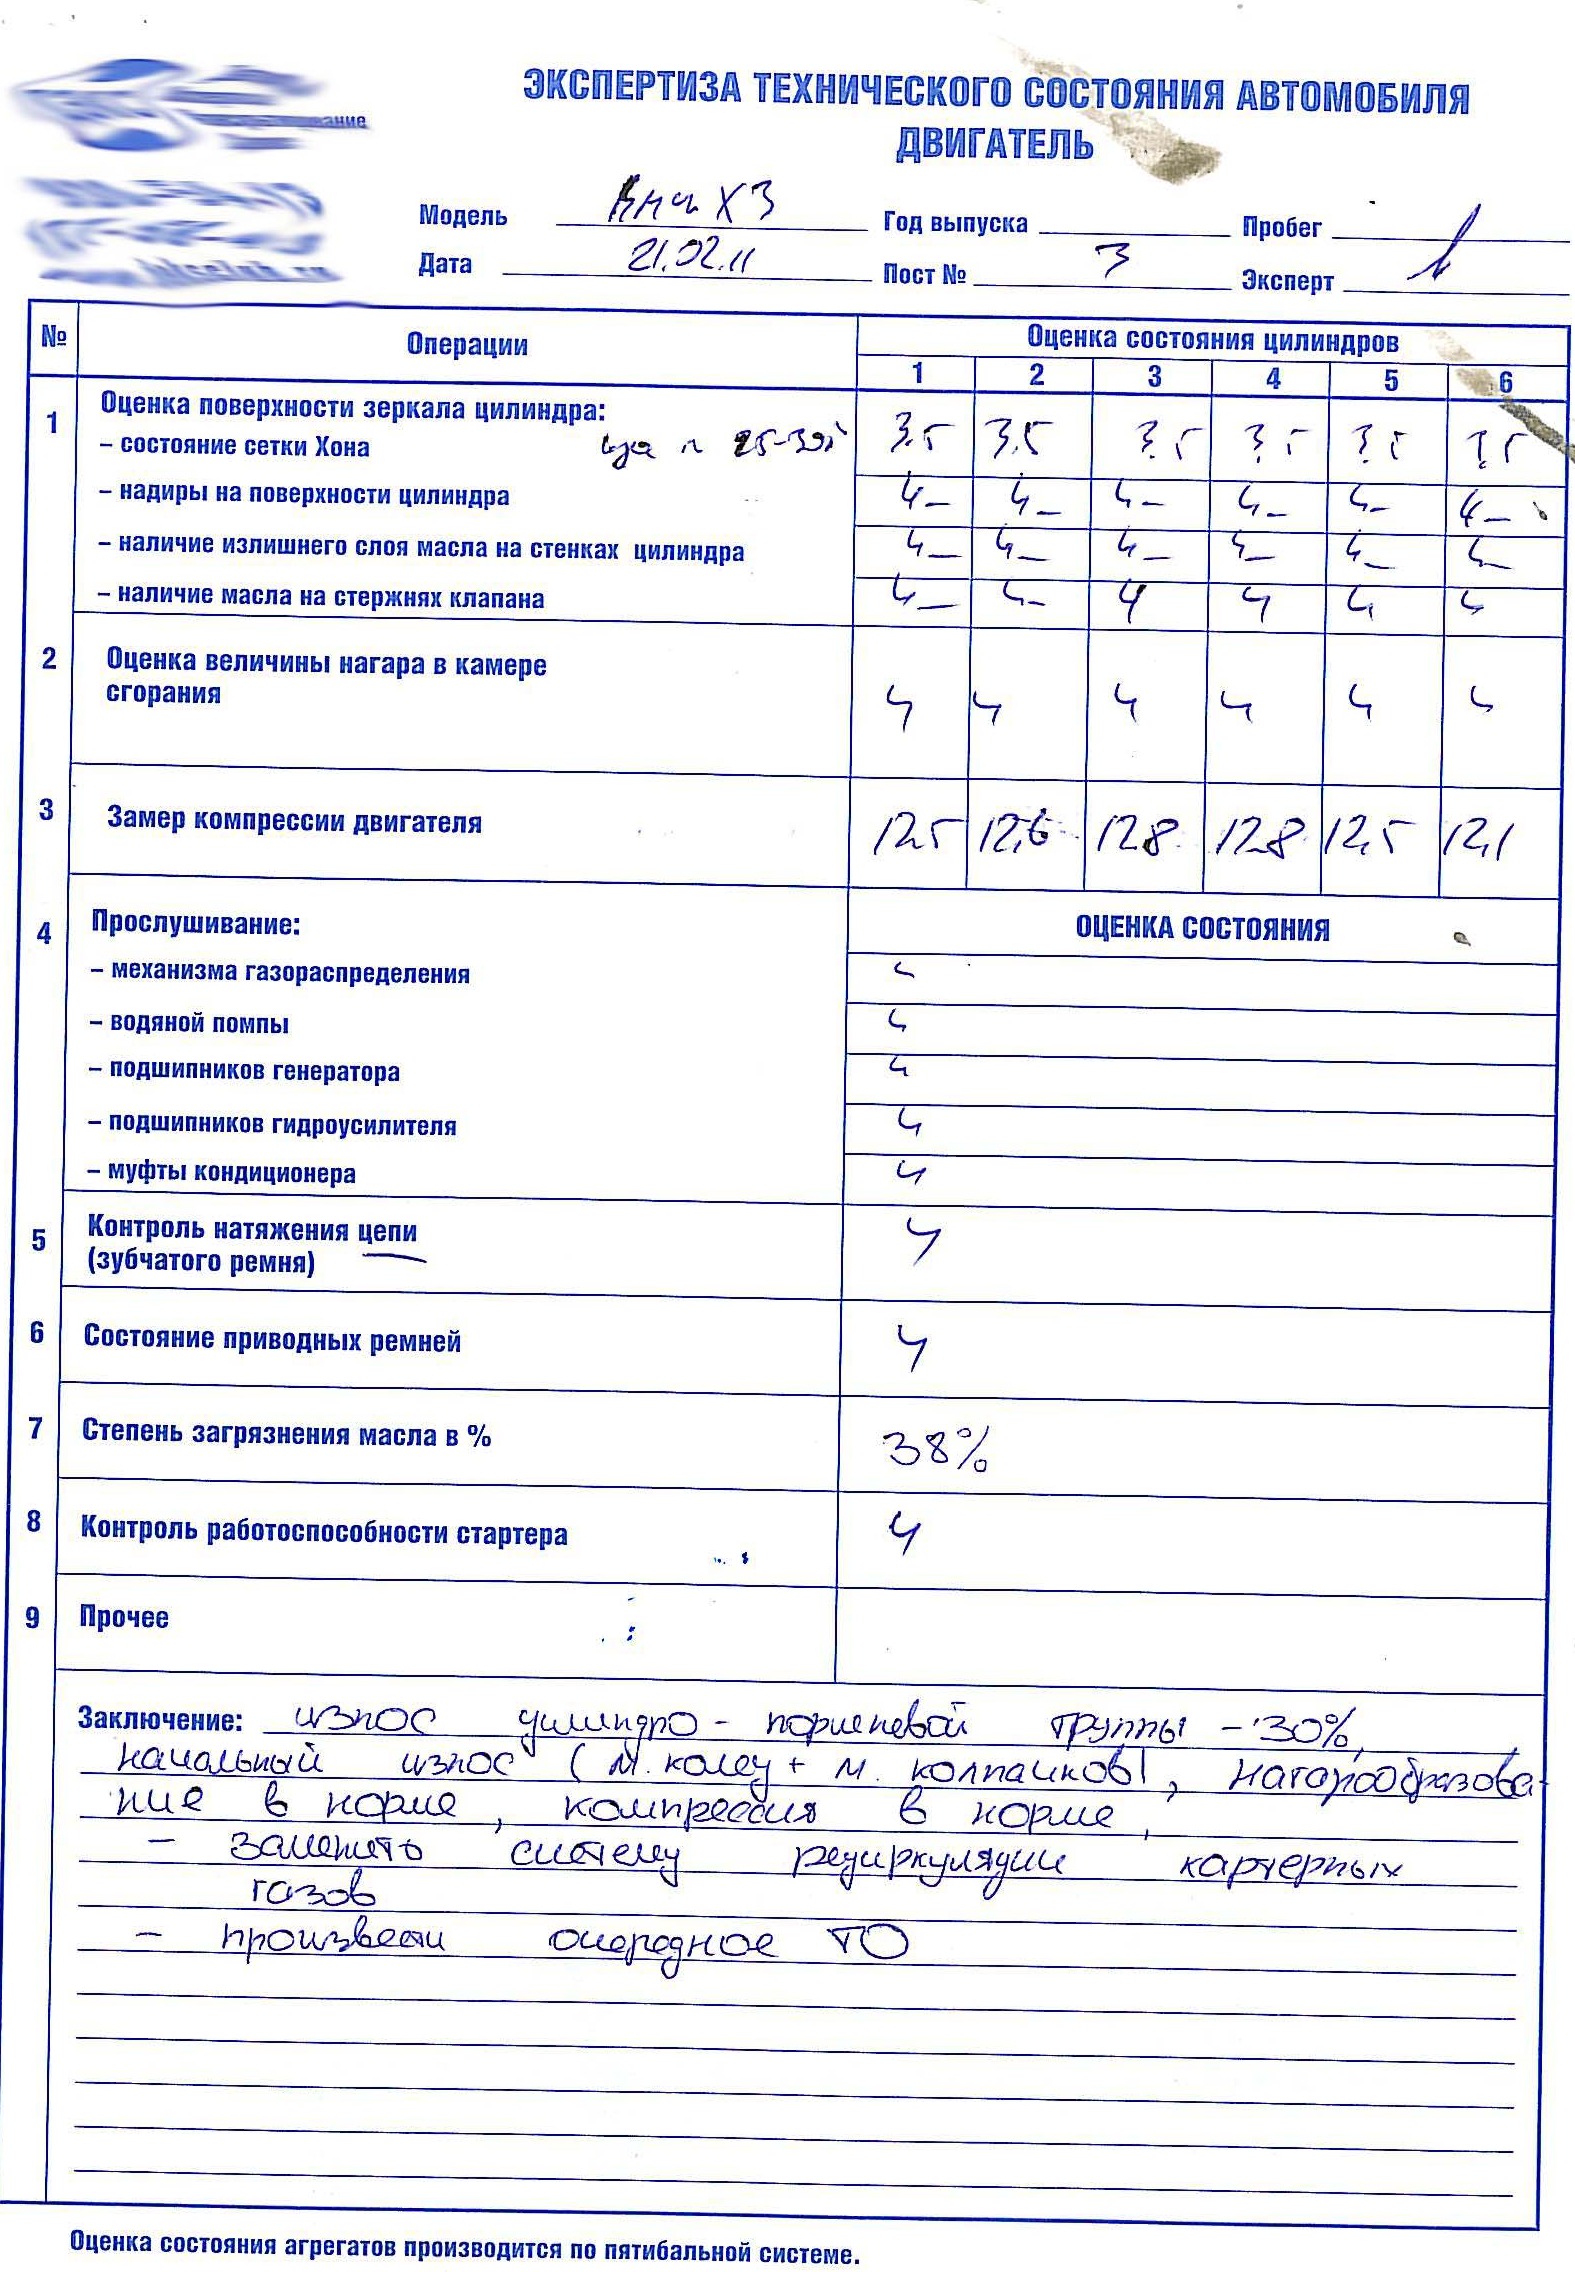 ЭКСПЕРТИЗА ТЕХНИЧЕСКОГО СОСТОЯНИЯ АВТОМОБИЛЯ
ДВИГАТЕЛЬ
Модель X3 Год выпуска Пробег
Дата 21.02.11 Пост № 3 Эксперт
№ Операции Оценка состояния цилиндров
1 2 3 4 5 6
1 Оценка поверхности зеркала цилиндра:
– состояние сетки Хона 3.5 3.5 3.5 3.5 3.5 3.5
– надиры на поверхности цилиндра 4– 4– 4– 4– 4– 4–
– наличие излишнего слоя масла на стенках цилиндра 4– 4– 4– 4– 4– 4–
– наличие масла на стержнях клапана 4– 4– 4 4 4 4
2 Оценка величины нагара в камере
сгорания 4 4 4 4 4 4
3 Замер компрессии двигателя 12.5 12,6 12.8 12.8 12,5 12,1
4 Прослушивание: ОЦЕНКА СОСТОЯНИЯ
– механизма газораспределения 4
– водяной помпы 4
– подшипников генератора 4
– подшипников гидроусилителя 4
– муфты кондиционера 4
5 Контроль натяжения цепи
(зубчатого ремня) 4
6 Состояние приводных ремней 4
7 Степень загрязнения масла в % 38%
8 Контроль работоспособности стартера 4
9 Прочее
Заключение: износ цилиндро - поршневой группы - 30%,
начальный износ (м. колец + м. колпачков), нагарообразова-
ние в норме, компрессия в норме,
– заменить систему рециркуляции картерных
газов
– произвести очередное ТО
Оценка состояния агрегатов производится по пятибальной системе.